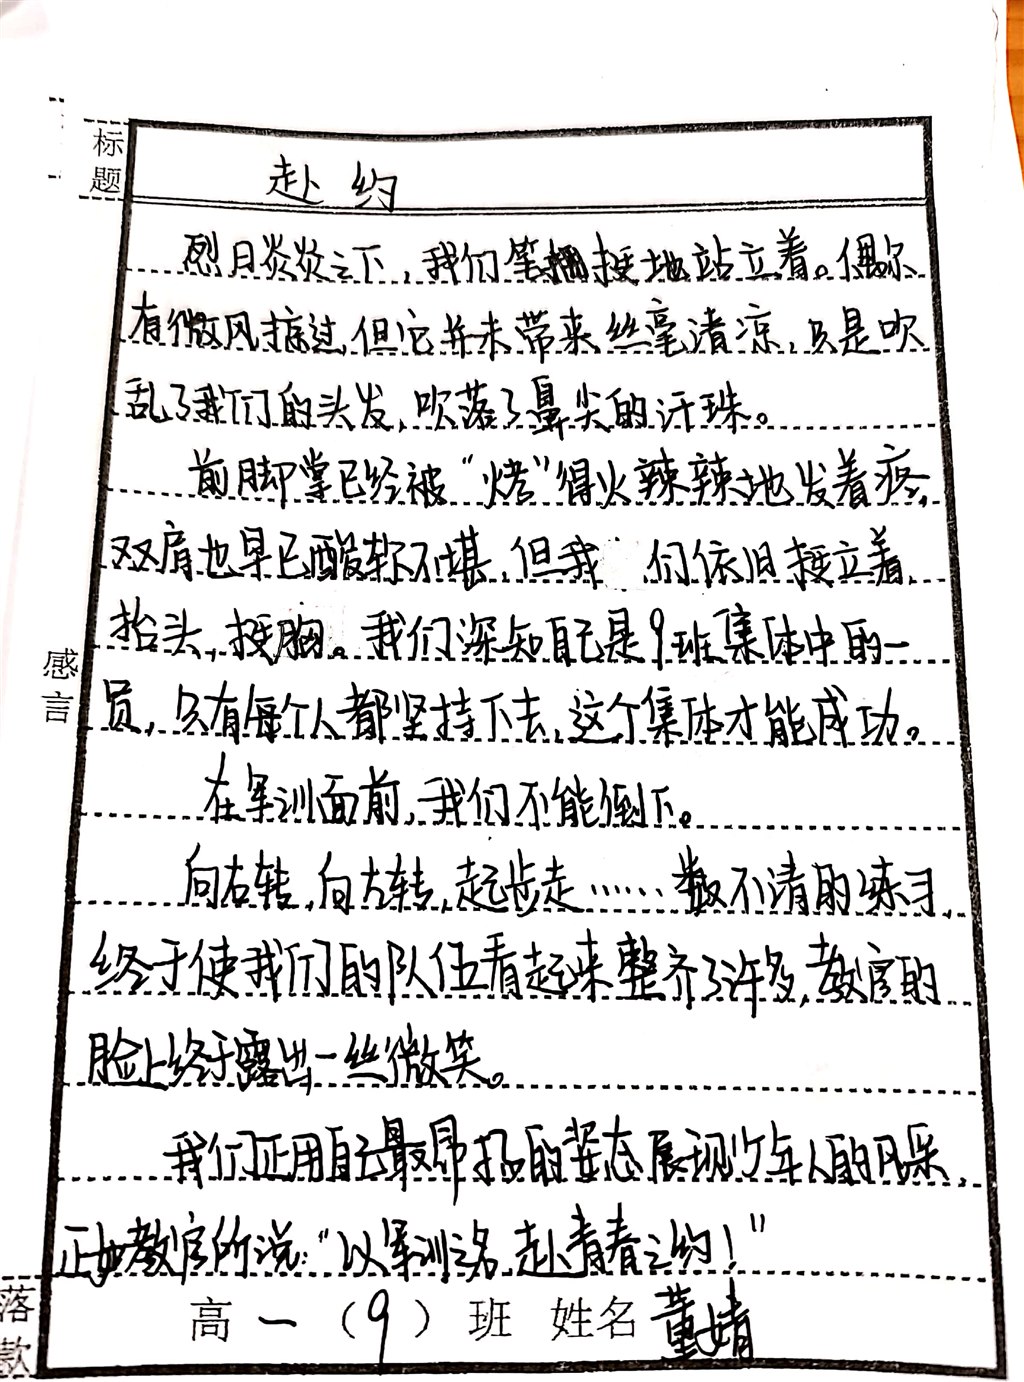 标题
赴约
烈日炎炎之下，我们笔挺地站立着。偶尔
有微风掠过，但它并未带来丝毫清凉，只是吹
乱了我们的头发，吹落了鼻尖的汗珠。
前脚掌已经被“烤”得火辣辣地发着疼，
双肩也早已酸软不堪，但我们依旧挺立着，
抬头，挺胸。我们深知自己是9班集体中的一
员，只有每个人都坚持下去，这个集体才能成功。
在军训面前，我们不能倒下。
向右转，向左转，起步走……数不清的练习，
终于使我们的队伍看起来整齐了许多，教官的
脸上终于露出一丝微笑。
我们正用自己最昂扬的姿态展现少年人的风采，
正如教官所说：“以军训之名，赴青春之约！”
感言
落款
高一（9）班 姓名董婧